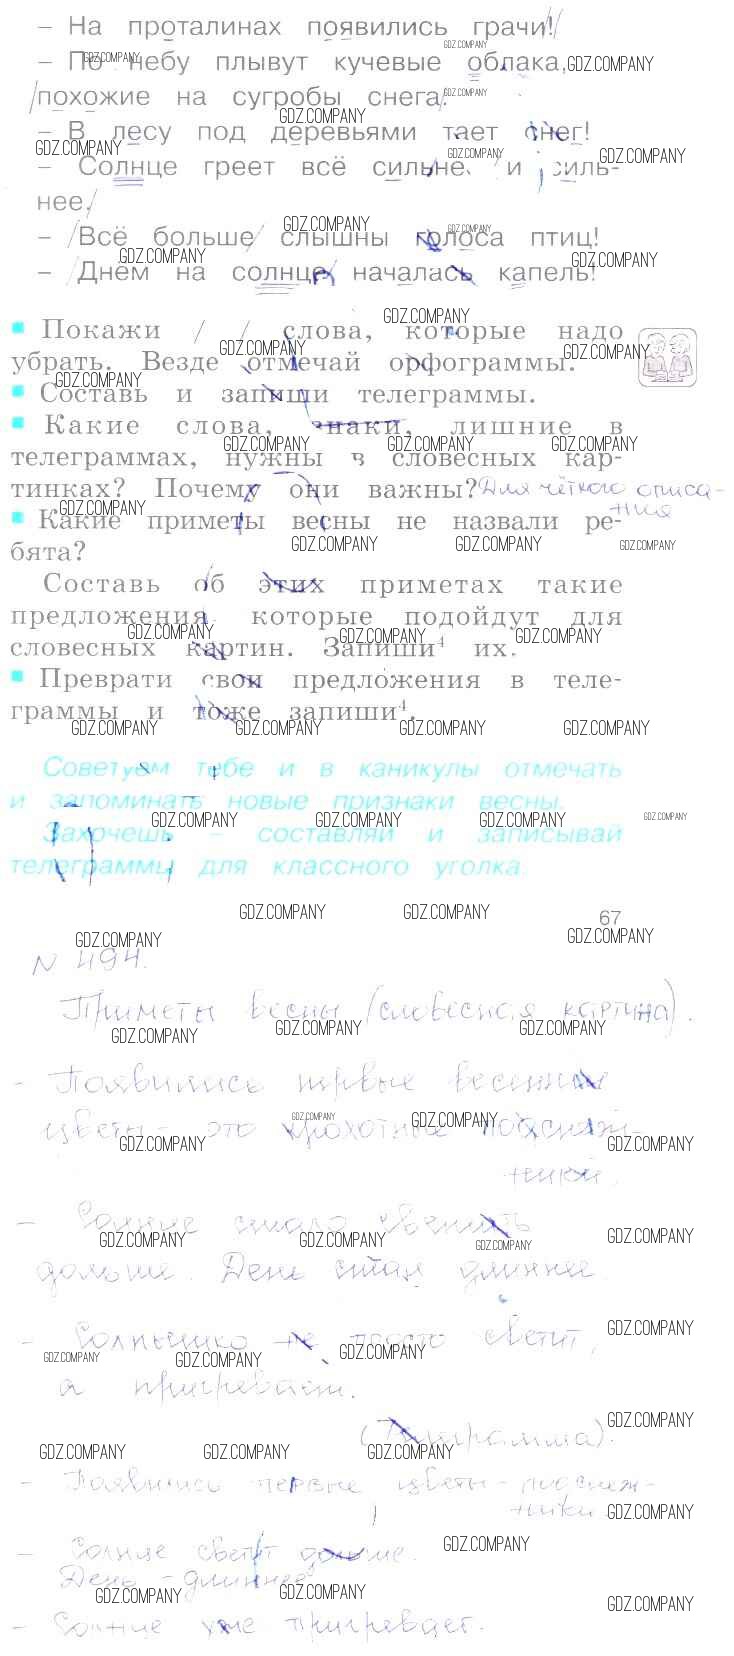 – На проталинах появились грачи!
– По небу плывут кучевые облака,
похожие на сугробы снега.
– В лесу под деревьями тает снег!
– Солнце греет всё сильнее и силь-
нее.
– Всё больше слышны голоса птиц!
– Днём на солнце началась капель!
Покажи / / слова, которые надо
убрать. Везде отмечай орфограммы.
Составь и запиши телеграммы.
Какие слова, знаки, лишние в
телеграммах, нужны в словесных кар-
тинках? Почему они важны? Для чёткого описа-
ния
Какие приметы весны не назвали ре-
бята?
Составь об этих приметах такие
предложения, которые подойдут для
словесных картин. Запиши⁴ их.
Преврати свои предложения в теле-
граммы и тоже запиши⁴.
Советуем тебе и в каникулы отмечать
и запоминать новые признаки весны.
Захочешь – составляй и записывай
телеграммы для классного уголка.
67
N 494.
Приметы весны (словесная картина).
- Появились первые весенние
цветы - это крохотные подснеж-
ники.
- Солнце стало светить
дольше. День стал длиннее.
- Солнышко не просто светит,
а пригревает.
(Телеграмма).
- Появились первые цветы - подснеж-
ники.
- Солнце светит дольше.
День - длиннее.
- Солнце уже пригревает.